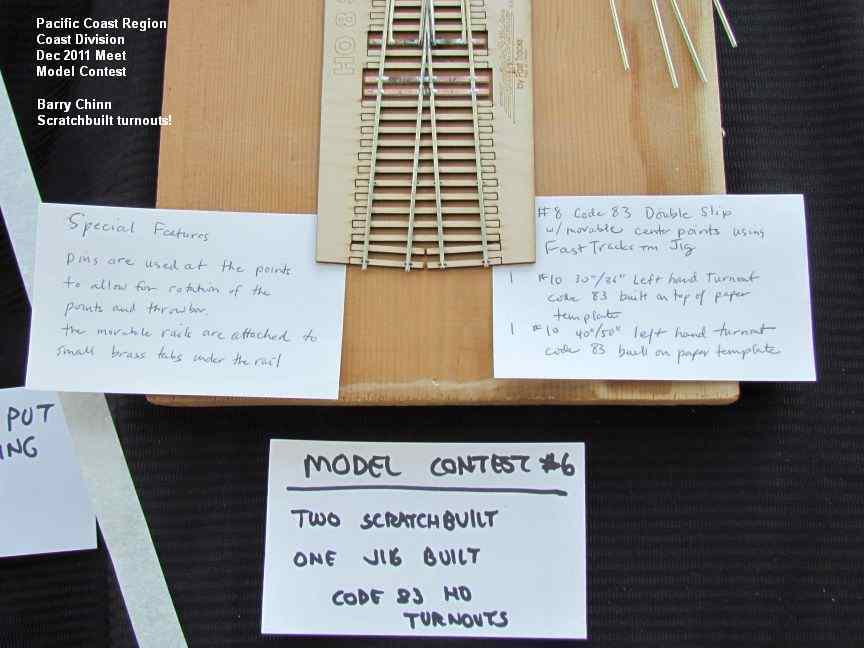 Pacific Coast Region
Coast Division
Dec 2011 Meet
Model Contest
Barry Chinn
Scratchbuilt turnouts!
HO 8
by Fast Tracks
Special Features
Pins are used at the points
to allow for rotation of the
points and throwbar.
the movable rails are attached to
small brass tabs under the rail
#8 Code 83 Double Slip
w/movable center points using
Fast Tracks TM Jig
1 #10 30"/26" Left hand Turnout
code 83 built on top of paper
template
1 #10 40"/50" left hand turnout
code 83 built on paper template
PUT
ING
MODEL CONTEST #6
TWO SCRATCHBUILT
ONE JIG BUILT
CODE 83 HO
TURNOUTS